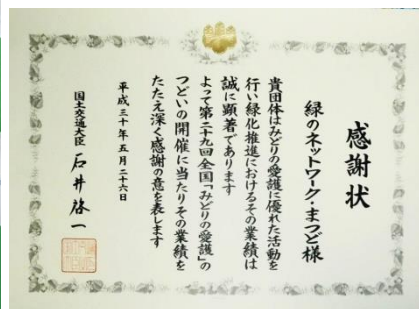 感謝状
緑のネットワーク・まつど様
貴団体はみどりの愛護に優れた活動を
行い緑化推進におけるその業績は
誠に顕著であります
よって第二十九回全国「みどりの愛護」の
つどいの開催に当たりその業績を
たたえ深く感謝の意を表します
平成三十年五月二十六日
国土交通大臣 石井啓一